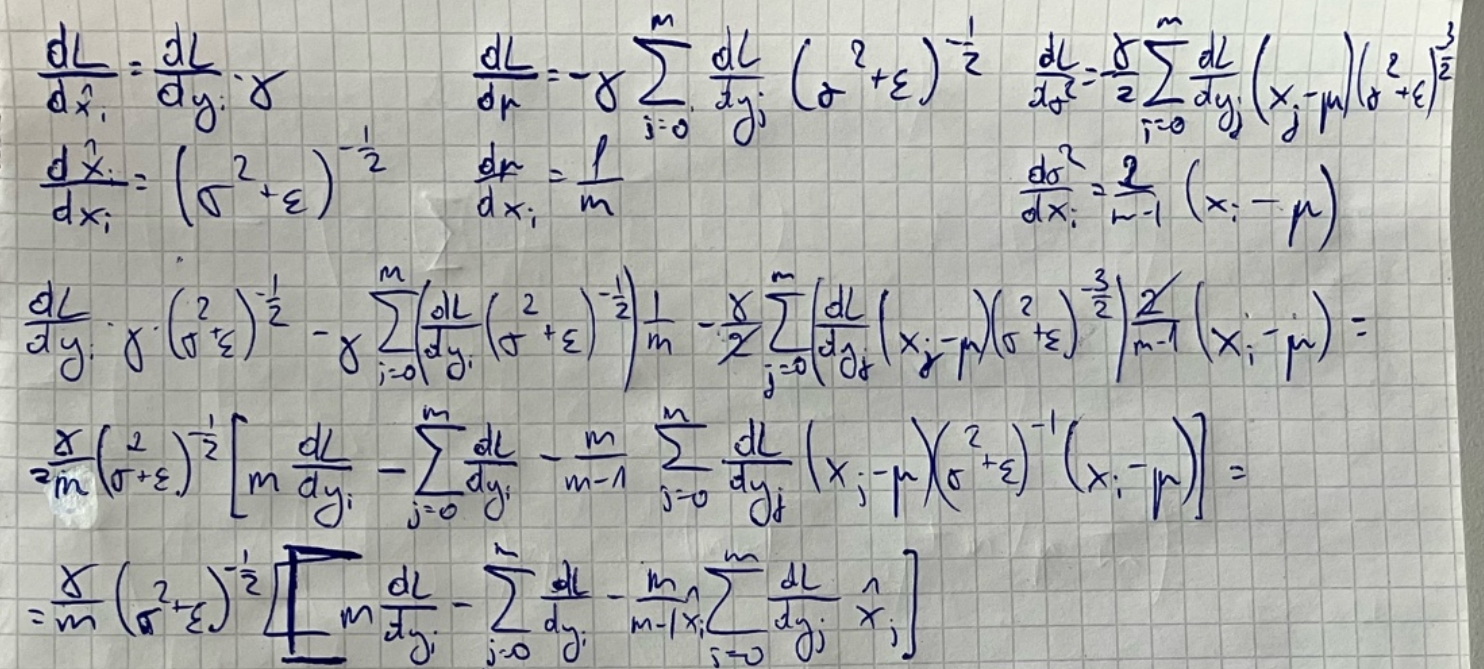 dL/dx̂ᵢ = dL/dyᵢ · γ    dL/dμ = -γ ∑_{j=0}^{m} dL/dyⱼ (σ²+ε)^{-1/2}    dL/dσ² = γ/2 ∑_{j=0}^{m} dL/dyⱼ (xⱼ-μ)(σ²+ε)^{-3/2}
dx̂ᵢ/dxᵢ = (σ²+ε)^{-1/2}    dμ/dxᵢ = 1/m    dσ²/dxᵢ = 2/(m-1) (xᵢ-μ)
dL/dyᵢ · γ · (σ²+ε)^{-1/2} - γ ∑_{j=0}^{m} (dL/dyᵢ (σ²+ε)^{-1/2}) 1/m - γ/2 ∑_{j=0}^{m} (dL/dyⱼ (xⱼ-μ)(σ²+ε)^{-3/2}) 2/(m-1) (xᵢ-μ) =
= γ/m (σ²+ε)^{-1/2} [m dL/dyᵢ - ∑_{j=0}^{m} dL/dyᵢ - m/(m-1) ∑_{j=0}^{m} dL/dyⱼ (xⱼ-μ)(σ²+ε)^{-1} (xᵢ-μ)] =
= γ/m (σ²+ε)^{-1/2} [m dL/dyᵢ - ∑_{j=0}^{m} dL/dyᵢ - m/(m-1) x̂ᵢ ∑_{j=0}^{m} dL/dyⱼ x̂ⱼ]